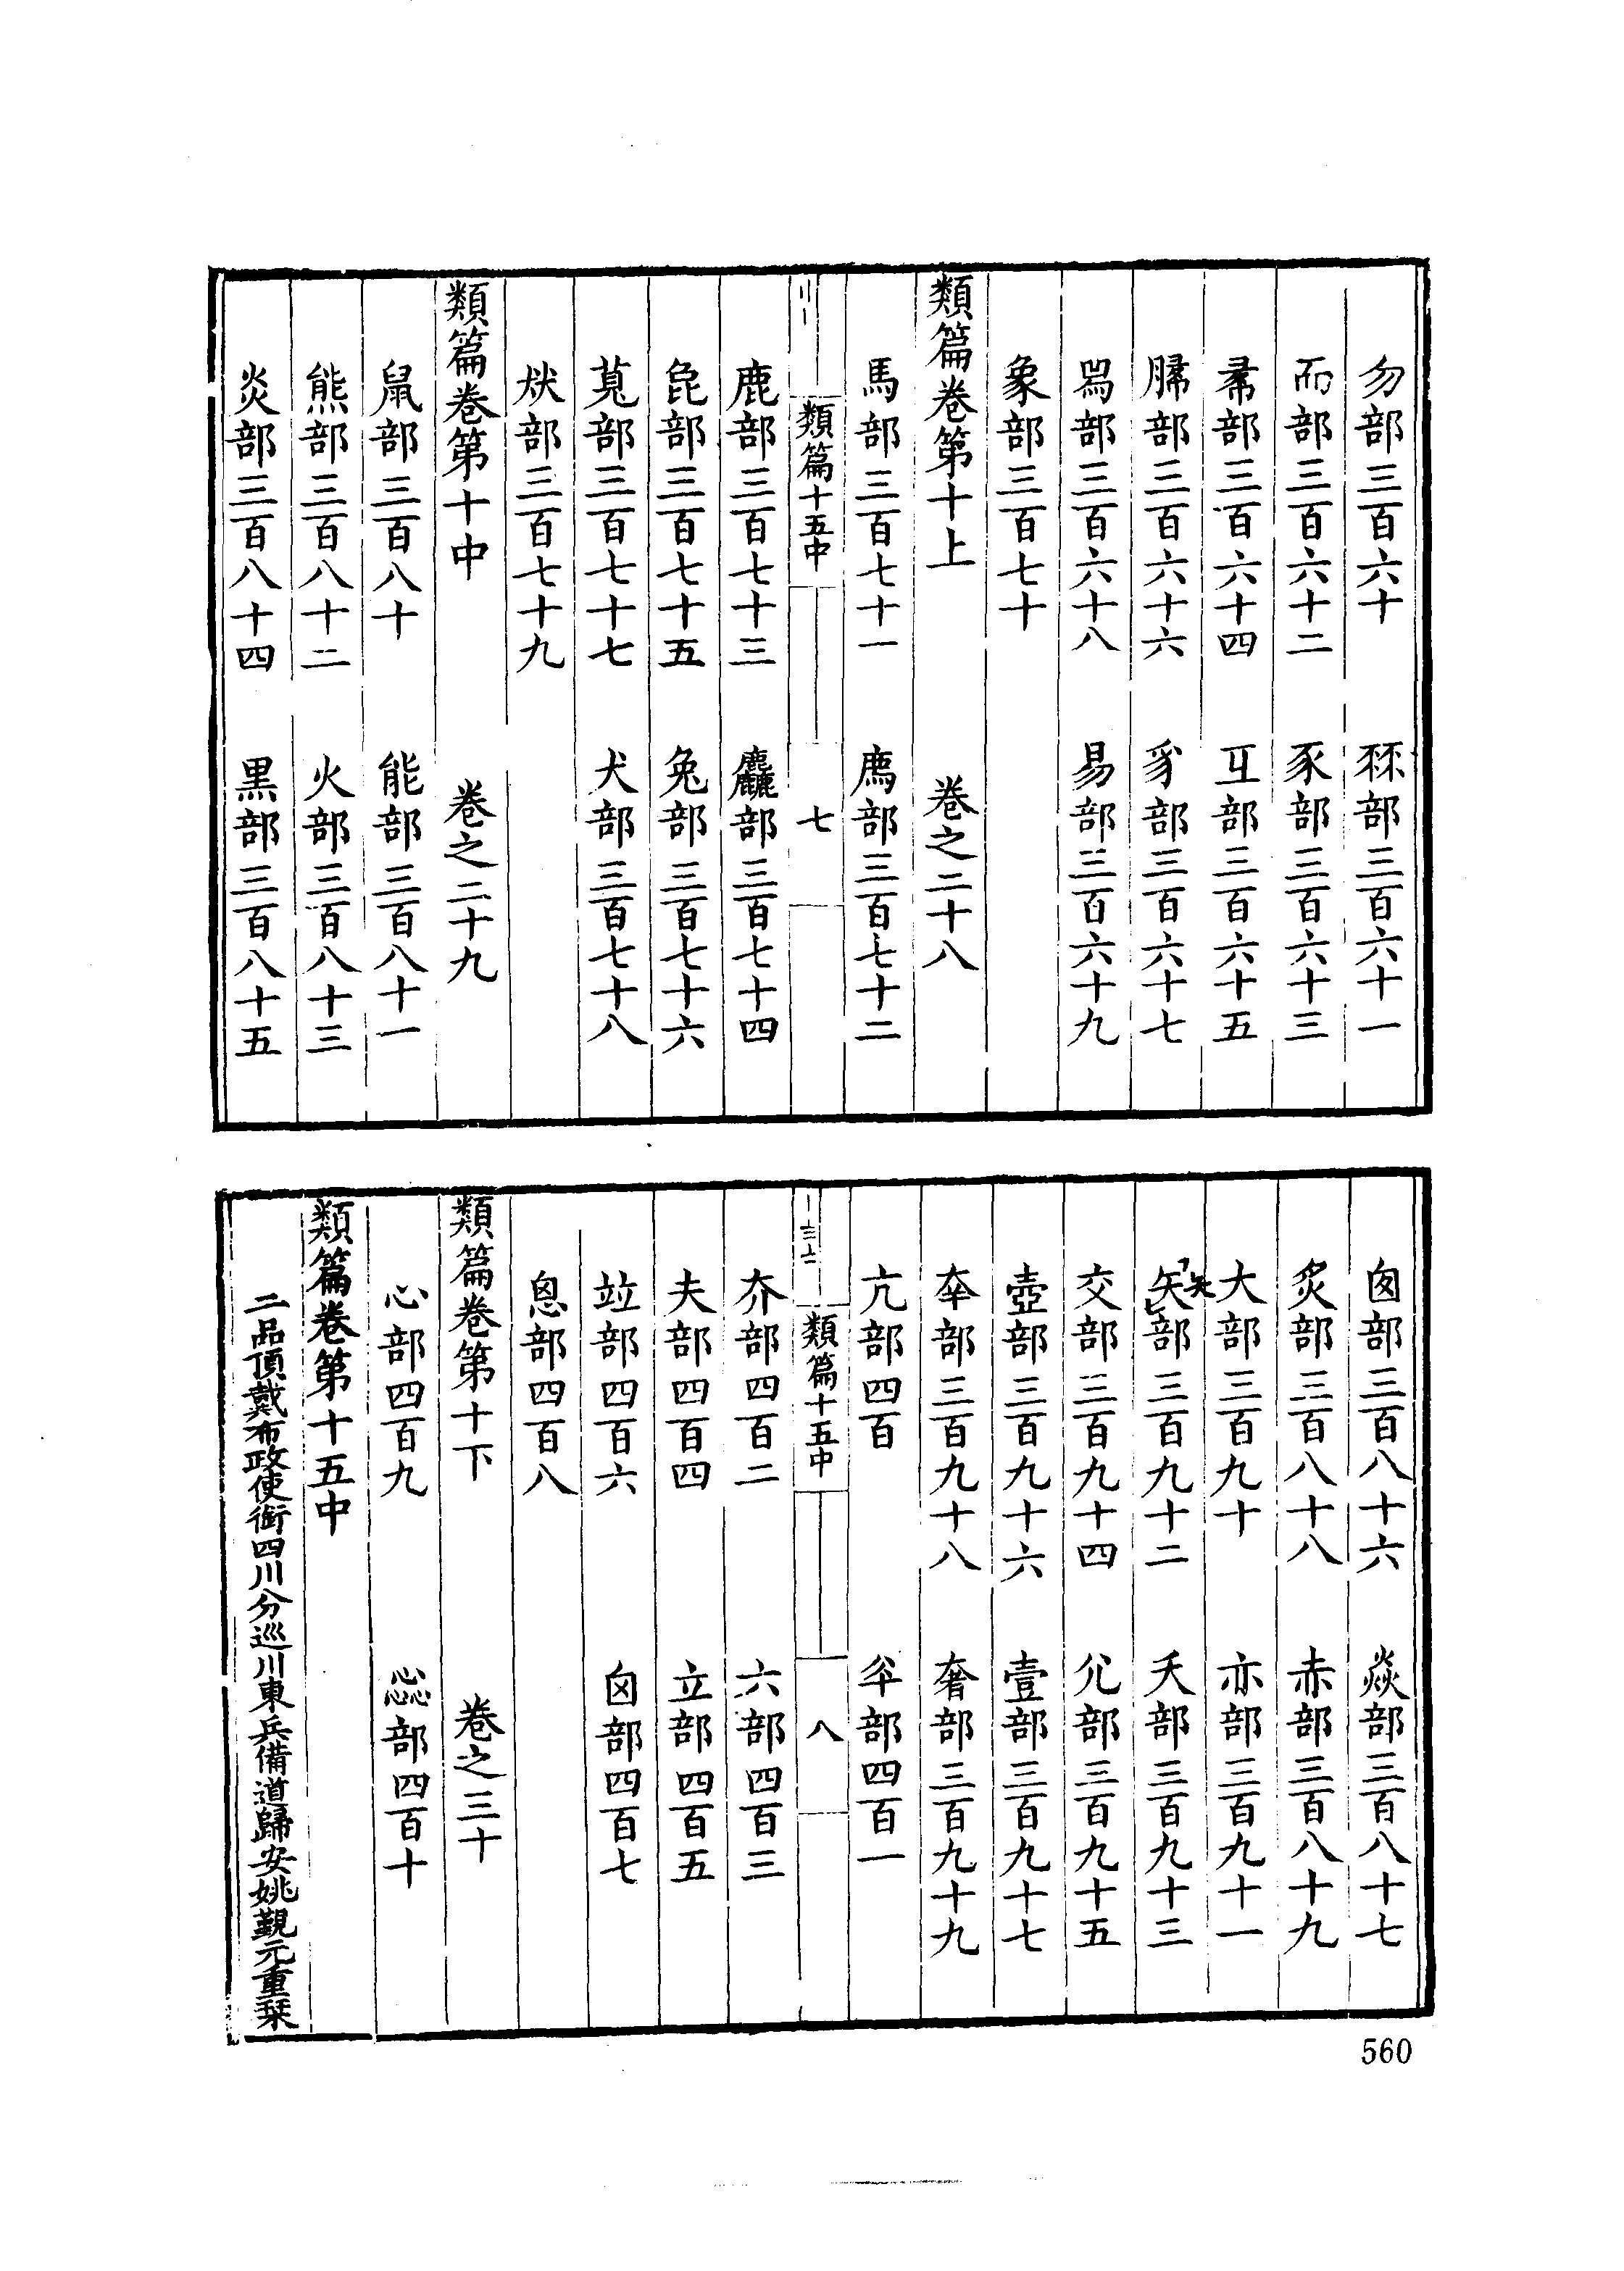 勿部三百六十　冄部三百六十一
而部三百六十二　豕部三百六十三
㣇部三百六十四　彑部三百六十五
部三百六十六　豸部三百六十七
部三百六十八　易部三百六十九
象部三百七十
類篇卷第十上　卷之二十八
馬部三百七十一　廌部三百七十二
類篇十五中　七
鹿部三百七十三　麤部三百七十四
㲋部三百七十五　兔部三百七十六
萈部三百七十七　犬部三百七十八
㹜部三百七十九
類篇卷第十中　卷之二十九
鼠部三百八十　能部三百八十一
熊部三百八十二　火部三百八十三
炎部三百八十四　黒部三百八十五
囱部三百八十六　焱部三百八十七
炙部三百八十八　赤部三百八十九
大部三百九十　亦部三百九十一
矢部三百九十二　夭部三百九十三
交部三百九十四　尣部三百九十五
壺部三百九十六　壹部三百九十七
㚔部三百九十八　奢部三百九十九
亢部四百　夲部四百一
類篇十五中　八
夰部四百二　六部四百三
夫部四百四　立部四百五
竝部四百六　囟部四百七
恖部四百八
類篇卷第十下　卷之三十
心部四百九　惢部四百十
類篇卷第十五中
二品頂戴布政使銜四川分巡川東兵備道歸安姚覲元重栞
560